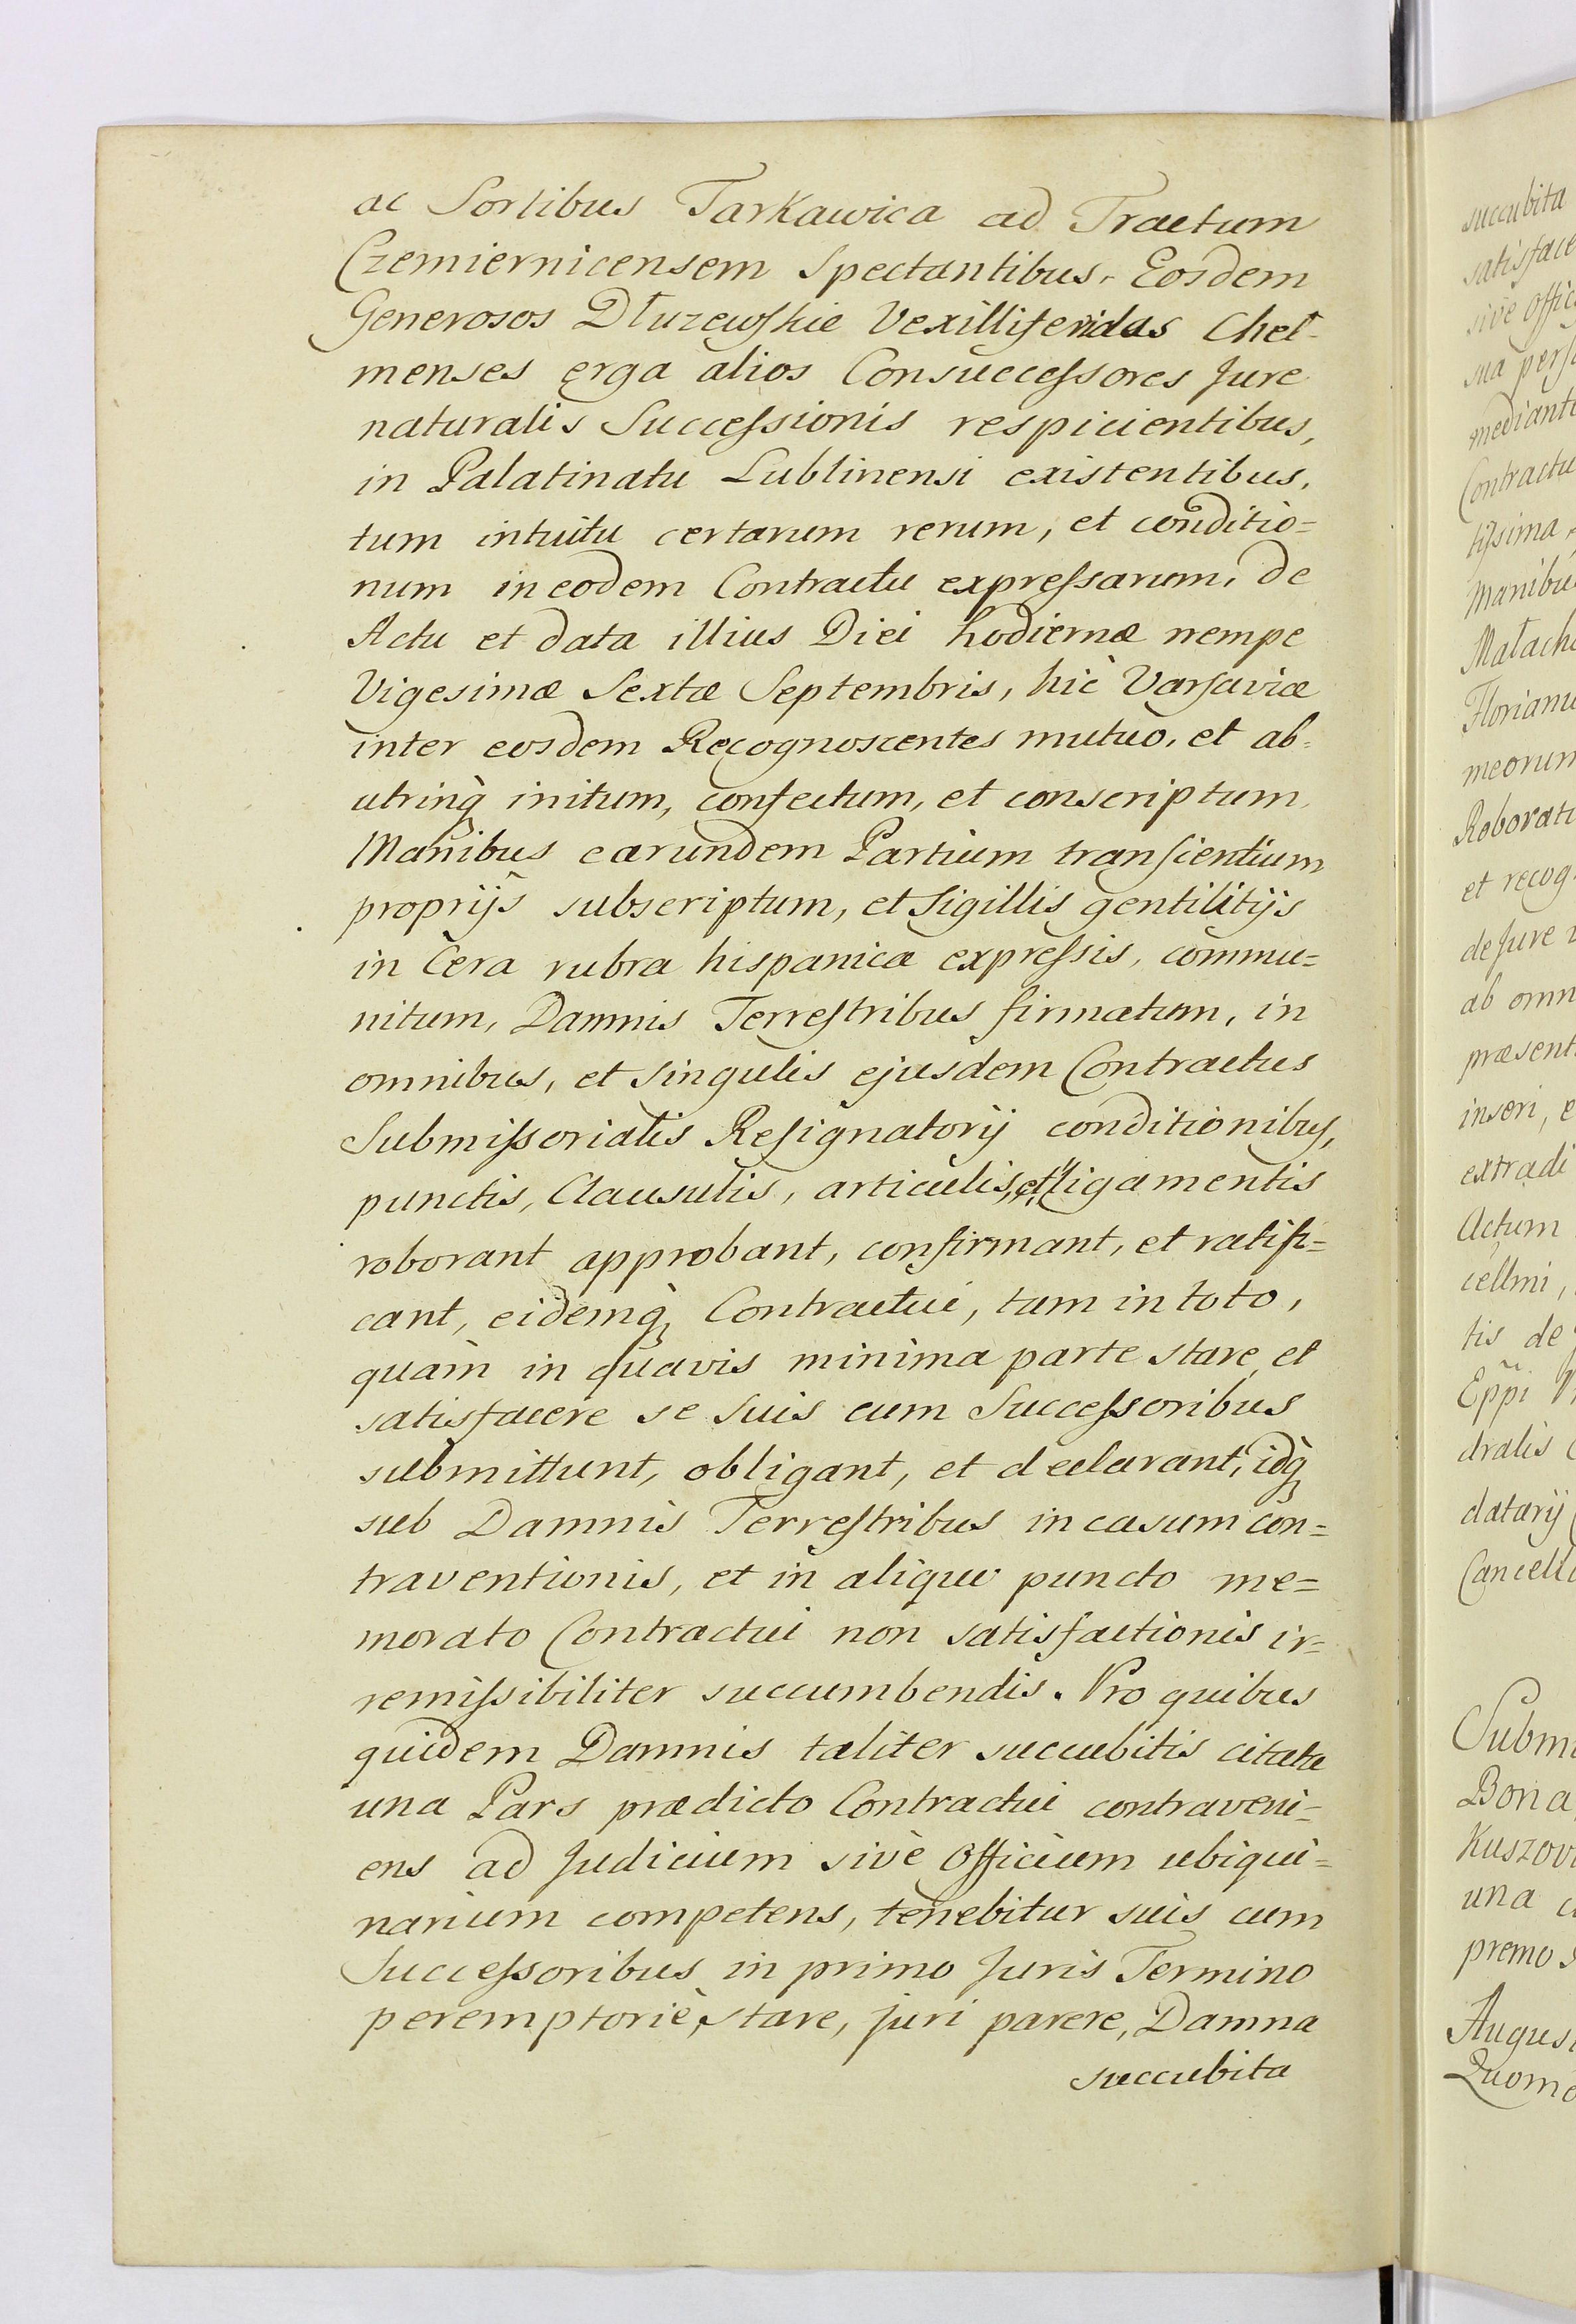 ac Sortibus Tarkawica ad Tractum
Czemiernicensem Spectantibus, Eosdem
Generosos Dłuzewskie Vexilliferidas Cheł-
menses erga alios Consuccessores Jure
naturalis Successionis respicientibus,
in Palatinatu Lublinensi existentibus,
tum intuitu certarum rerum, et conditio=
num in eodem Contractu expressarum, de
Actu et data illius Diei hodiernæ nempe
Vigesimæ Sextæ Septembris, hìc Varsaviæ
inter eosdem Recognoscentes mutuo, et ab=
utrinq̀ initum, confectum, et conscriptum,
Manibus earundem Partium transientium
proprijs subscriptum, et Sigillis gentilitijs
in Cera rubra hispanica expressis, commu=
nitum, Damnis Terrestribus firmatum, in
omnibus, et Singulis ejusdem Contractus
Submissorialis Resignatorij conditionibus,
punctis, Clausulis, articulis, et ligamentis
roborant approbant, confirmant, et ratifi=
cant, eidemq̀ Contractui, tam in toto,
quam in quavis minima parte stare et
satisfacere se suis cum Successoribus
submittunt, obligant, et declarant, idq̀
sub Damnis Terrestribus in casum con=
traventionis, et in aliquo puncto me=
morato Contractui non satisfactionis ir=
remissibiliter succumbendis. Pro quibus
quidem Damnis taliter succubitis citata
una Pars prædicto Contractui contraveni=
ens ad Judicium sivè Officium ubiqui=
narium competens, tenebitur suis cum
Successoribus in primo Juris Termino
peremptoriè, stare, juri parere, Damna
succubita
succubita
satisface
sivè Offic
sua pers
mediant
Contractu
tissima
Manibu
Małach
Florianu
meorum
Roborat
et recog
de Jure
ab omn
præsent
inseri, e
extradi
Actum
cellmi,
tis de
Eppi
dralis
datarij
Cancell
Subm
Bona
Kuszov
una c
premo s
August
Quomo